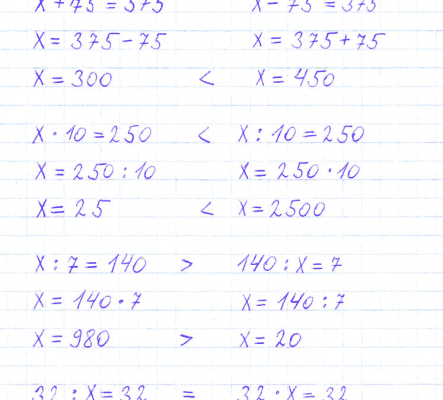 x + 75 = 375 x - 75 = 375
x = 375 - 75 x = 375 + 75
x = 300 < x = 450
x · 10 = 250 < x : 10 = 250
x = 250 : 10 x = 250 · 10
x = 25 < x = 2500
x : 7 = 140 > 140 : x = 7
x = 140 · 7 x = 140 : 7
x = 980 > x = 20
32 : x = 32 = 32 · x = 32